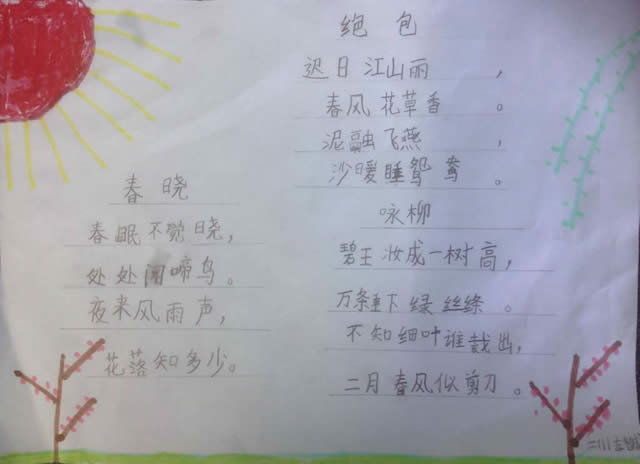 春晓
春眠不觉晓，
处处闻啼鸟。
夜来风雨声，
花落知多少。
绝包
迟日江山丽，
春风花草香。
泥融飞燕，
沙暖睡鸳鸯。
咏柳
碧王妆成一树高，
万条垂下绿丝绦。
不知细叶谁裁出，
二月春风似剪刀。